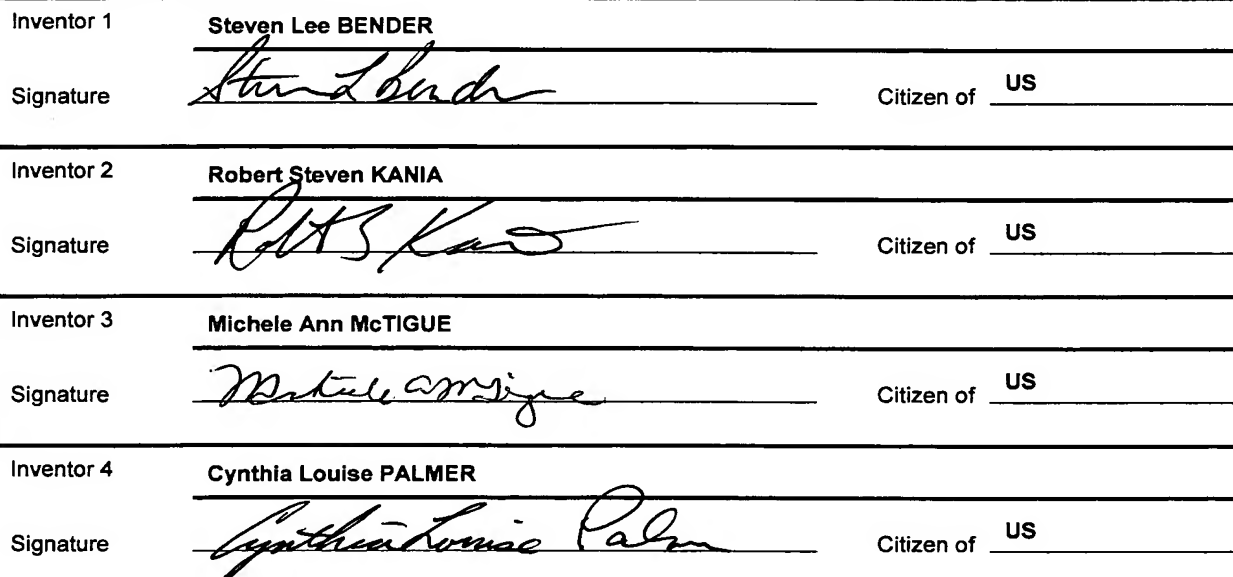 Inventor 1 Steven Lee BENDER
Signature Steven L Bender Citizen of US
Inventor 2 Robert Steven KANIA
Signature Robt S Kania Citizen of US
Inventor 3 Michele Ann McTIGUE
Signature Michele A McTigue Citizen of US
Inventor 4 Cynthia Louise PALMER
Signature Cynthia Louise Palmer Citizen of US